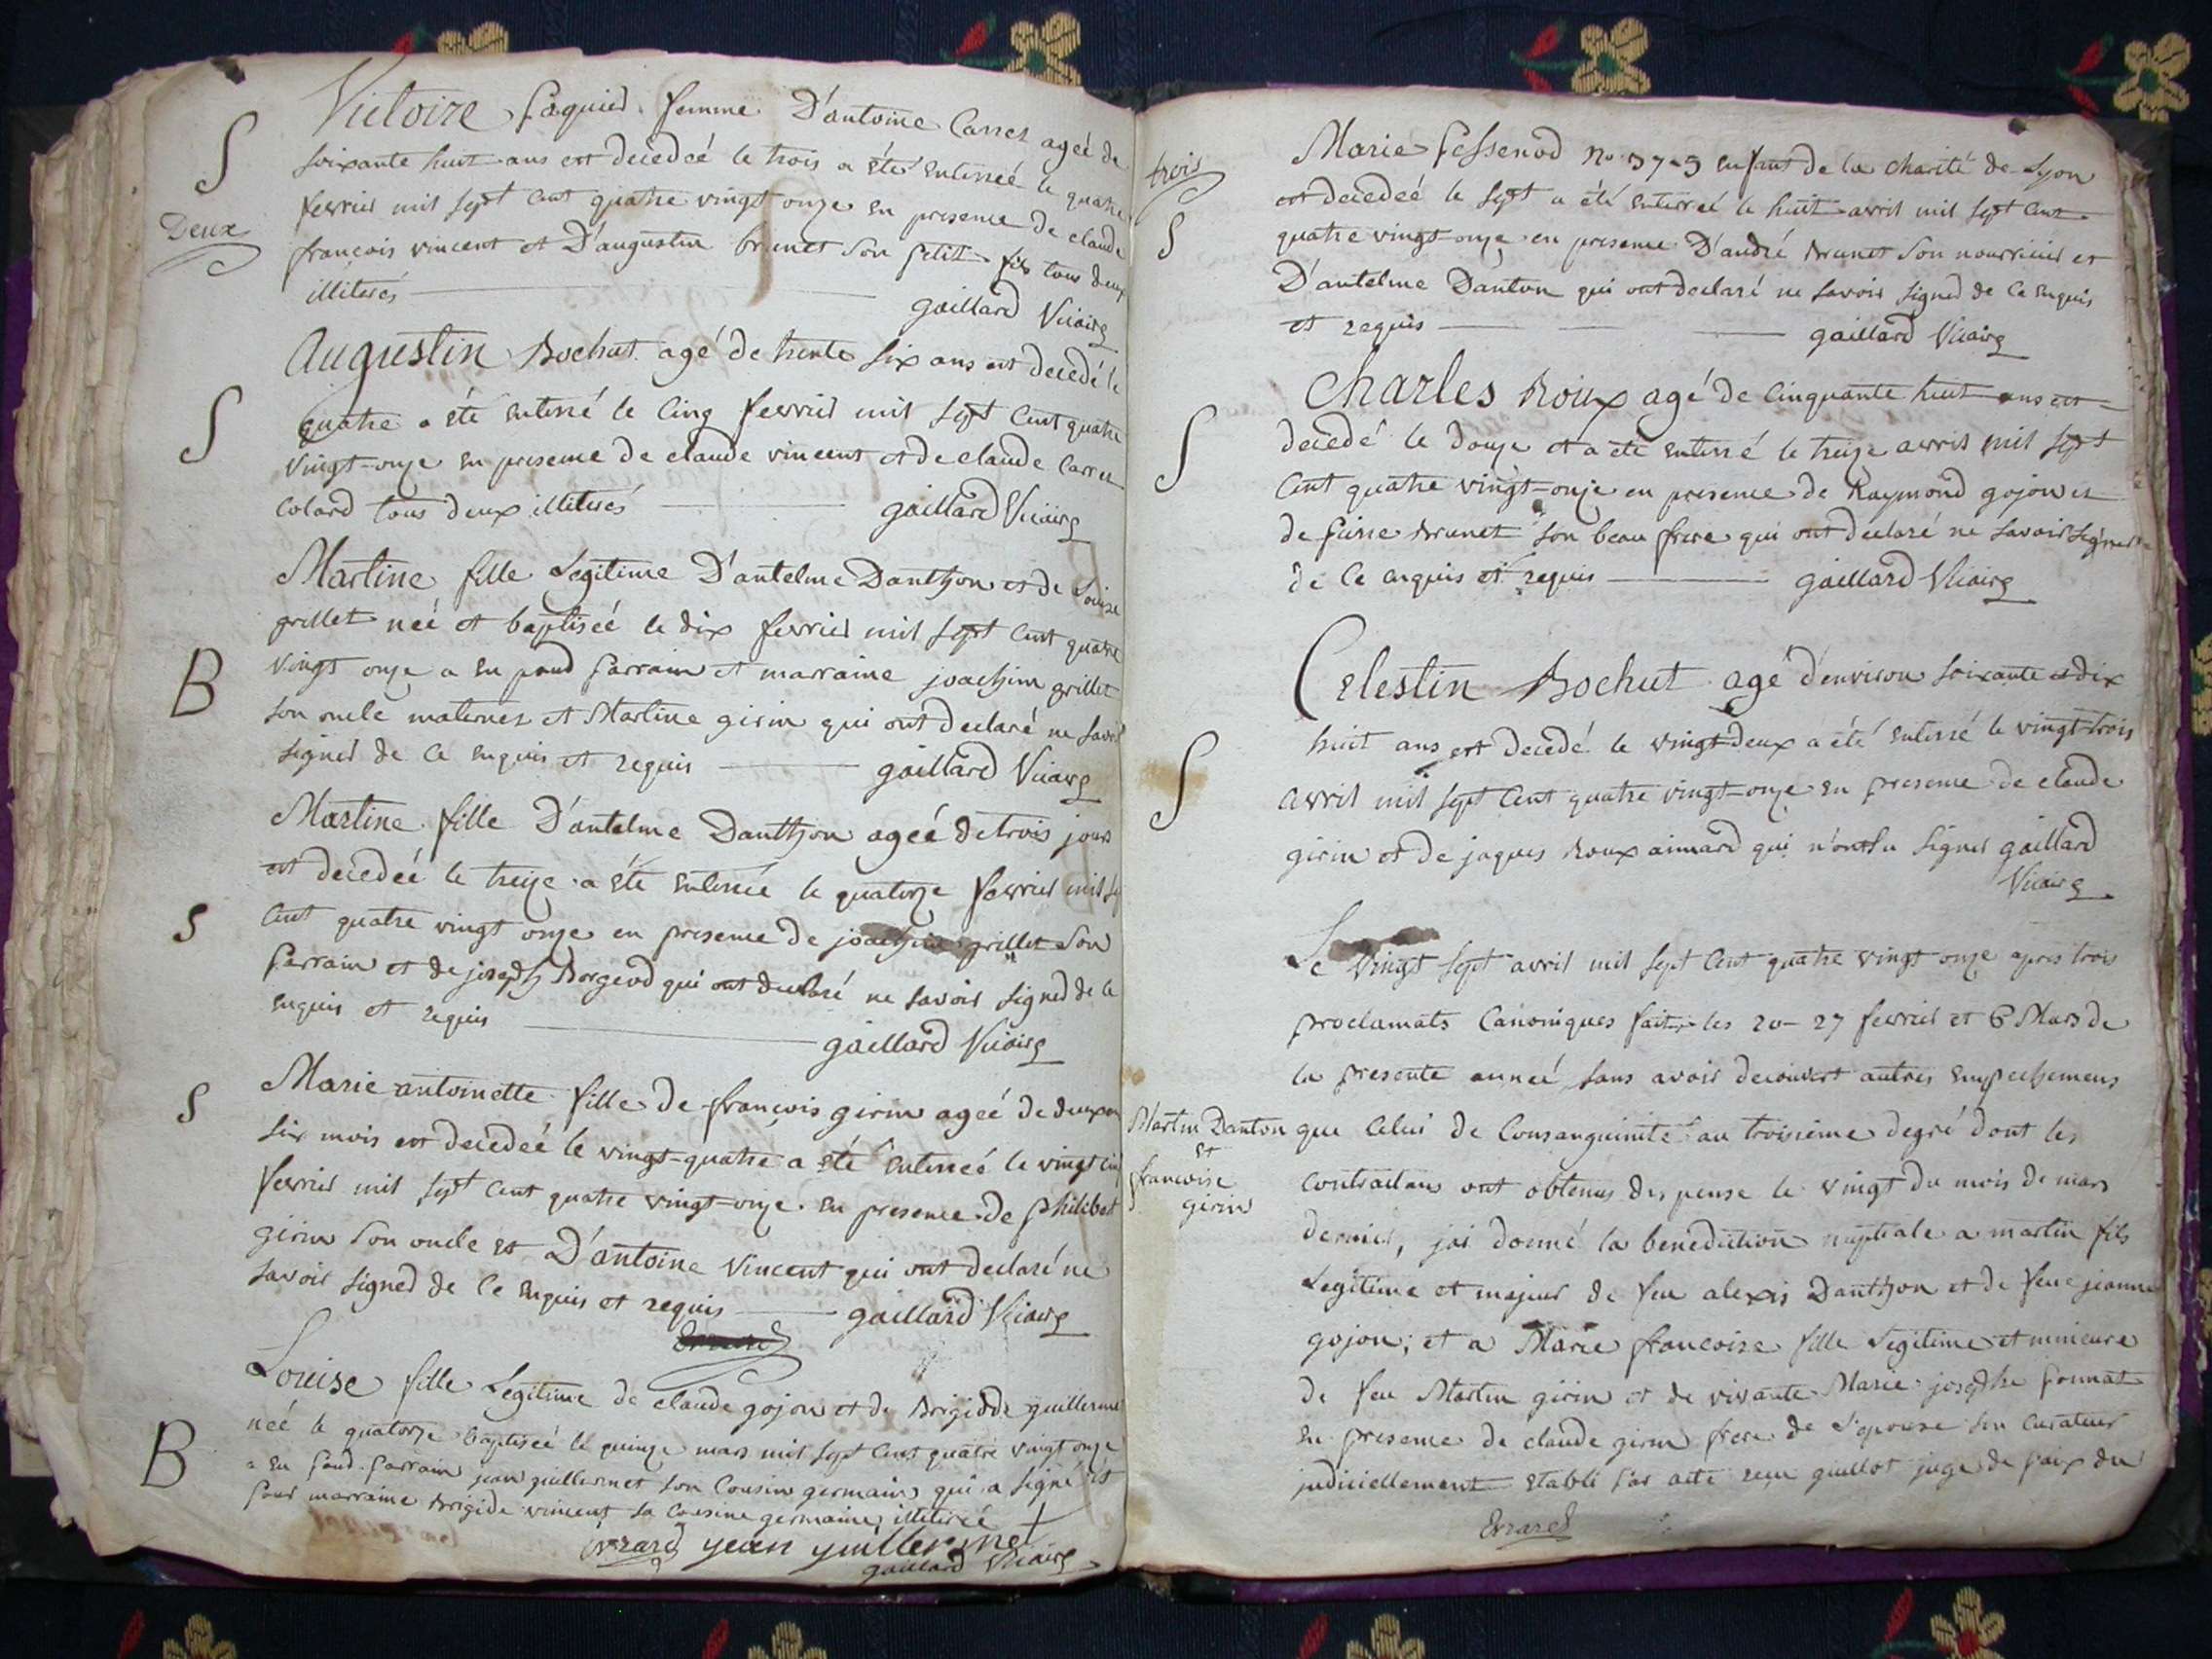 Deux
S
Victoire paquier femme D'antoine Carrer ageé de
soixante huit ans est decedeé le trois a été enterreé le quatre
fevrier mil sept cent quatre vingt onze en presence de claude
francois vincent et D'augustin brunet son petit fils tous deux
illiterés gaillard Vicaire
S
Augustin Bochut agé de trente six ans est decedé le
quatre a été enterré le cinq fevrier mil sept cent quatre
vingt-onze en presence de claude vincent et de claude Carrer
Colard tous deux illiterés gaillard Vicaire
B
Martine fille Legitime D'antelme Danthon et de Louise
grillet neé et baptiseé le dix fevrier mil sept cent quatre
vingt onze a eu pour parrain et marraine joachim grillet
son oncle maternel et Martine girin qui ont declaré ne savoir
signer de ce enquis et requis gaillard Vicaire
S
Martine fille D'antelme Danthon ageé de trois jours
est decedeé le treize a été enterrée le quatorze fevrier mil sept
cent quatre vingt onze en presence de joachim grillet son
parrain et de joseph Borgeod qui ont declaré ne savoir signer de ce
enquis et requis gaillard Vicaire
S
Marie antoinette fille de françois girin ageé de deux ans
six mois est decedeé le vingt-quatre a été enterreé le vingt cinq
fevrier mil sept cent quatre vingt-onze en presence de philibert
girin son oncle et D'antoine Vincent qui ont declaré ne
savoir signer de ce enquis et requis gaillard Vicaire
B
Louise fille Legitime de claude gojon et de Brigidde guillermet
neé le quatorze baptiseé le quinze mars mil sept cent quatre vingt onze
a eu pour parrain jean guillermet son cousin germain qui a signé et
pour marraine Brigide vincent sa cousine germaine illitereé
Evrard jean guillermet
gaillard Vicaire
trois
S
Marie Pessenod No enfant de la charité de Lyon
est decedeé le sept a été enterreé le huit avril mil sept cent
quatre vingt-onze en presence D'andré Brunet son nourricier et
D'antelme Danton qui ont declaré ne savoir signer de ce enquis
et requis gaillard Vicaire
S
Charles Roux agé de cinquante huit ans est
decedé le douze et a eté enterré le treize avril mil sept
cent quatre vingt-onze en presence de Raymond gojon et
de pierre Brunet son beau frere qui ont declaré ne savoir signer
de ce enquis et requis gaillard Vicaire
S
Celestin Bochut agé d'environ soixante et dix
huit ans est decedé le vingt deux a été enterré le vingt-trois
avril mil sept cent quatre vingt-onze en presence de claude
girin et de jaques Roux aimard qui n'ont su signer gaillard
Vicaire
Martin Danton
et
francoise
girin
Le vingt sept avril mil sept cent quatre vingt onze apres trois
proclamats canoniques faits les 20 - 27 fevrier et 6 Mars de
la presente anneé sans avoir decouvert autres empechemens
que celui de consanguinité au troisieme degré dont les
contractans ont obtenus dispense le vingt du mois de mars
dernier, jai donné la benediction nuptiale a martin fils
Legitime et majeur de feu alexis Danthon et de feue jeanne
gojon; et a Marie francoise fille Legitime et mineure
de feu Martin girin et de vivante Marie josephe ponnat
en presence de claude girin frere de l'epouse son curateur
judiciellement etabli par acte reçu guillot juge de paix du
Evrard